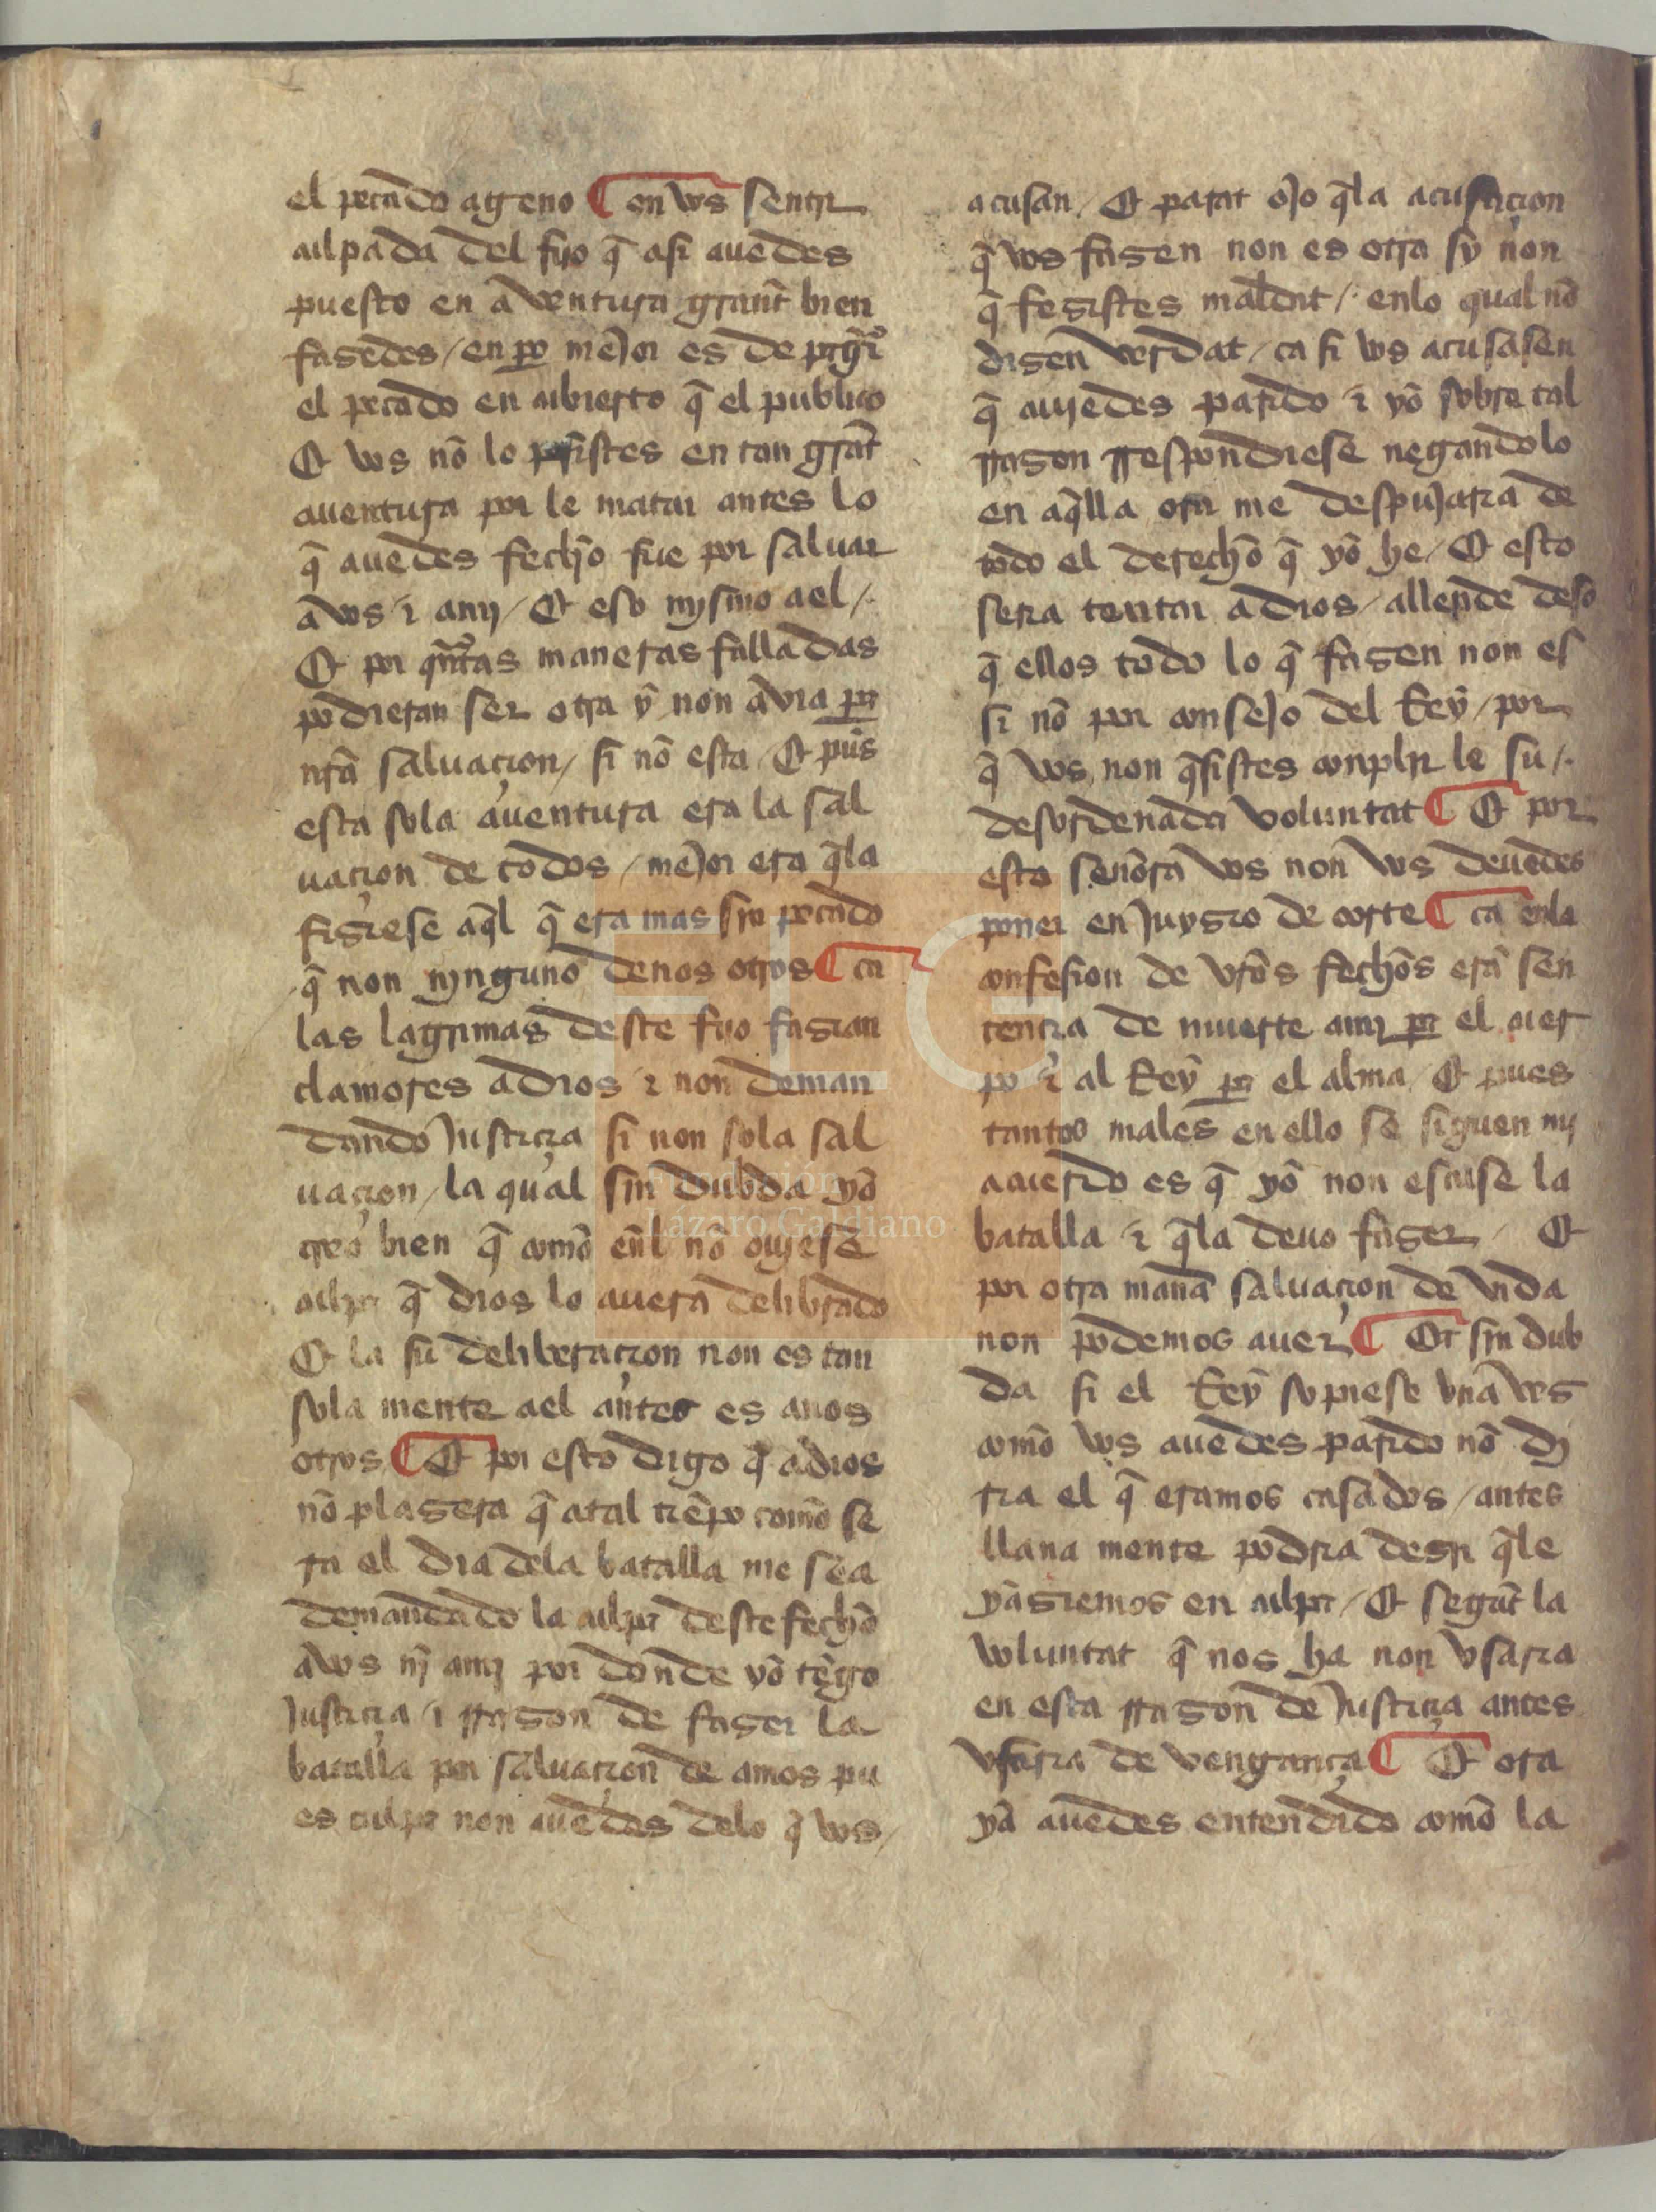 el pecado ageno ¶ en vos sentir
culpada del fijo q̃ asi auedes
puesto en aventura grant̃ bien
fasedes / en pero mejor es de
el pecado en cubierto q̃ el publico
Et vos nõ lo posistes en tan grãt
auentura por le matar antes lo
q̃ auedes fecho fue por saluar
a vos ⁊ a my / Et eso mysmo a el /.
Et por q̃ntas maneras falladas
podieran ser otra y non avia para
nr̃a saluaçion / si nõ esta / Et pũs
esta sola auentura era la sal
uaçion de todos / mejor era q̃ la
fisiese aq̃l q̃ era mas sin pecado
q̃ non nynguno de nos otros ¶ ca
las lagrimas deste fijo fasian
clamores a dios ⁊ non deman
dando justiçia si non sola sal
uaçion / la qual sin dubda yõ
creo bien q̃ comõ en̄l nõ ouyese
culpa q̃ dios lo auera delibrado
Et la su deliberaçion non es tan
sola mente a el antes es a nos
otros ¶ Et por esto digo q̃ a dios
nõ plasera q̃ a tal tiẽpo comõ se
ra el dia dela batalla me sea
demandado la culpa deste fecho
a vos nj̃ a my por donde yõ tẽgo
justiçia ⁊ rrason de faser la
batalla por saluaçion de amos pu
es culpa non auedes delo q̃ vos /
acusan / Et parat ojo q̃ la acusaçion
q̃ vos fasen non es otra sy non
q̃ fesistes maldat /. en lo qual nõ
disen verdat / ca si vos acusasen
q̃ auyedes parido ⁊ yõ sobre tal
rrason rrespondiese negandolo
en aq̃lla ora me despujaria de
todo el derecho q̃ yõ he / Et esto
seria tentar a dios / allende deso
q̃ ellos todo lo q̃ fasen non es
si nõ por consejo del Rey / por
q̃ vos non q̃sistes conplir le su /.
desordenada voluntat ¶ Et por
esto señora vos non vos deuedes
poner en juysio de corte ¶ ca en la
confesion de vr̃os fechos era sen
tençia de muerte a my para el cuer
po ⁊ al Rey para el alma / Et pues
tantos males en ello se siguen my
acuerdo es q̃ yõ non escuse la
batalla ⁊ q̃ la deuo faser / Et
por otra manã saluaçion de vida
non podemos auer ¶ Et sin dub
da si el Rey sopiese vna ves
comõ vos auedes parido nõ dj
ria el q̃ eramos casados / antes
llana mente podria desir q̃ le
yasiemos en culpa / Et segũt la
voluntat q̃ nos ha non vsaria
en esta rrason de justiçia antes
vsaria de vengança ¶ Et ora
ya auedes entendido comõ la
FLG
Fundación
Lázaro Galdiano